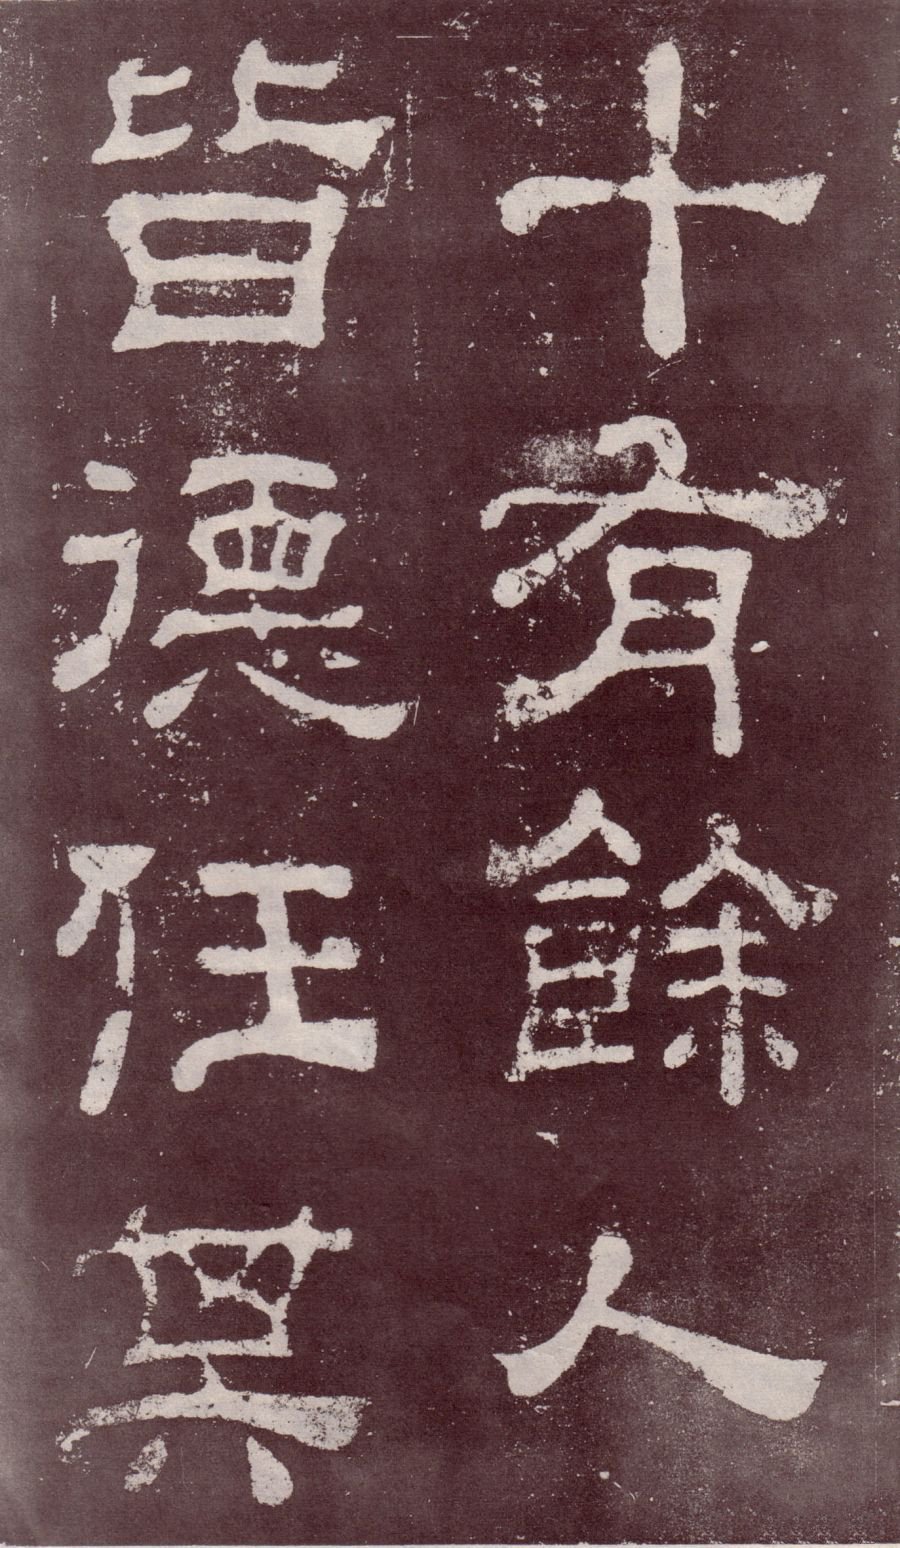 十有餘人
皆德任其